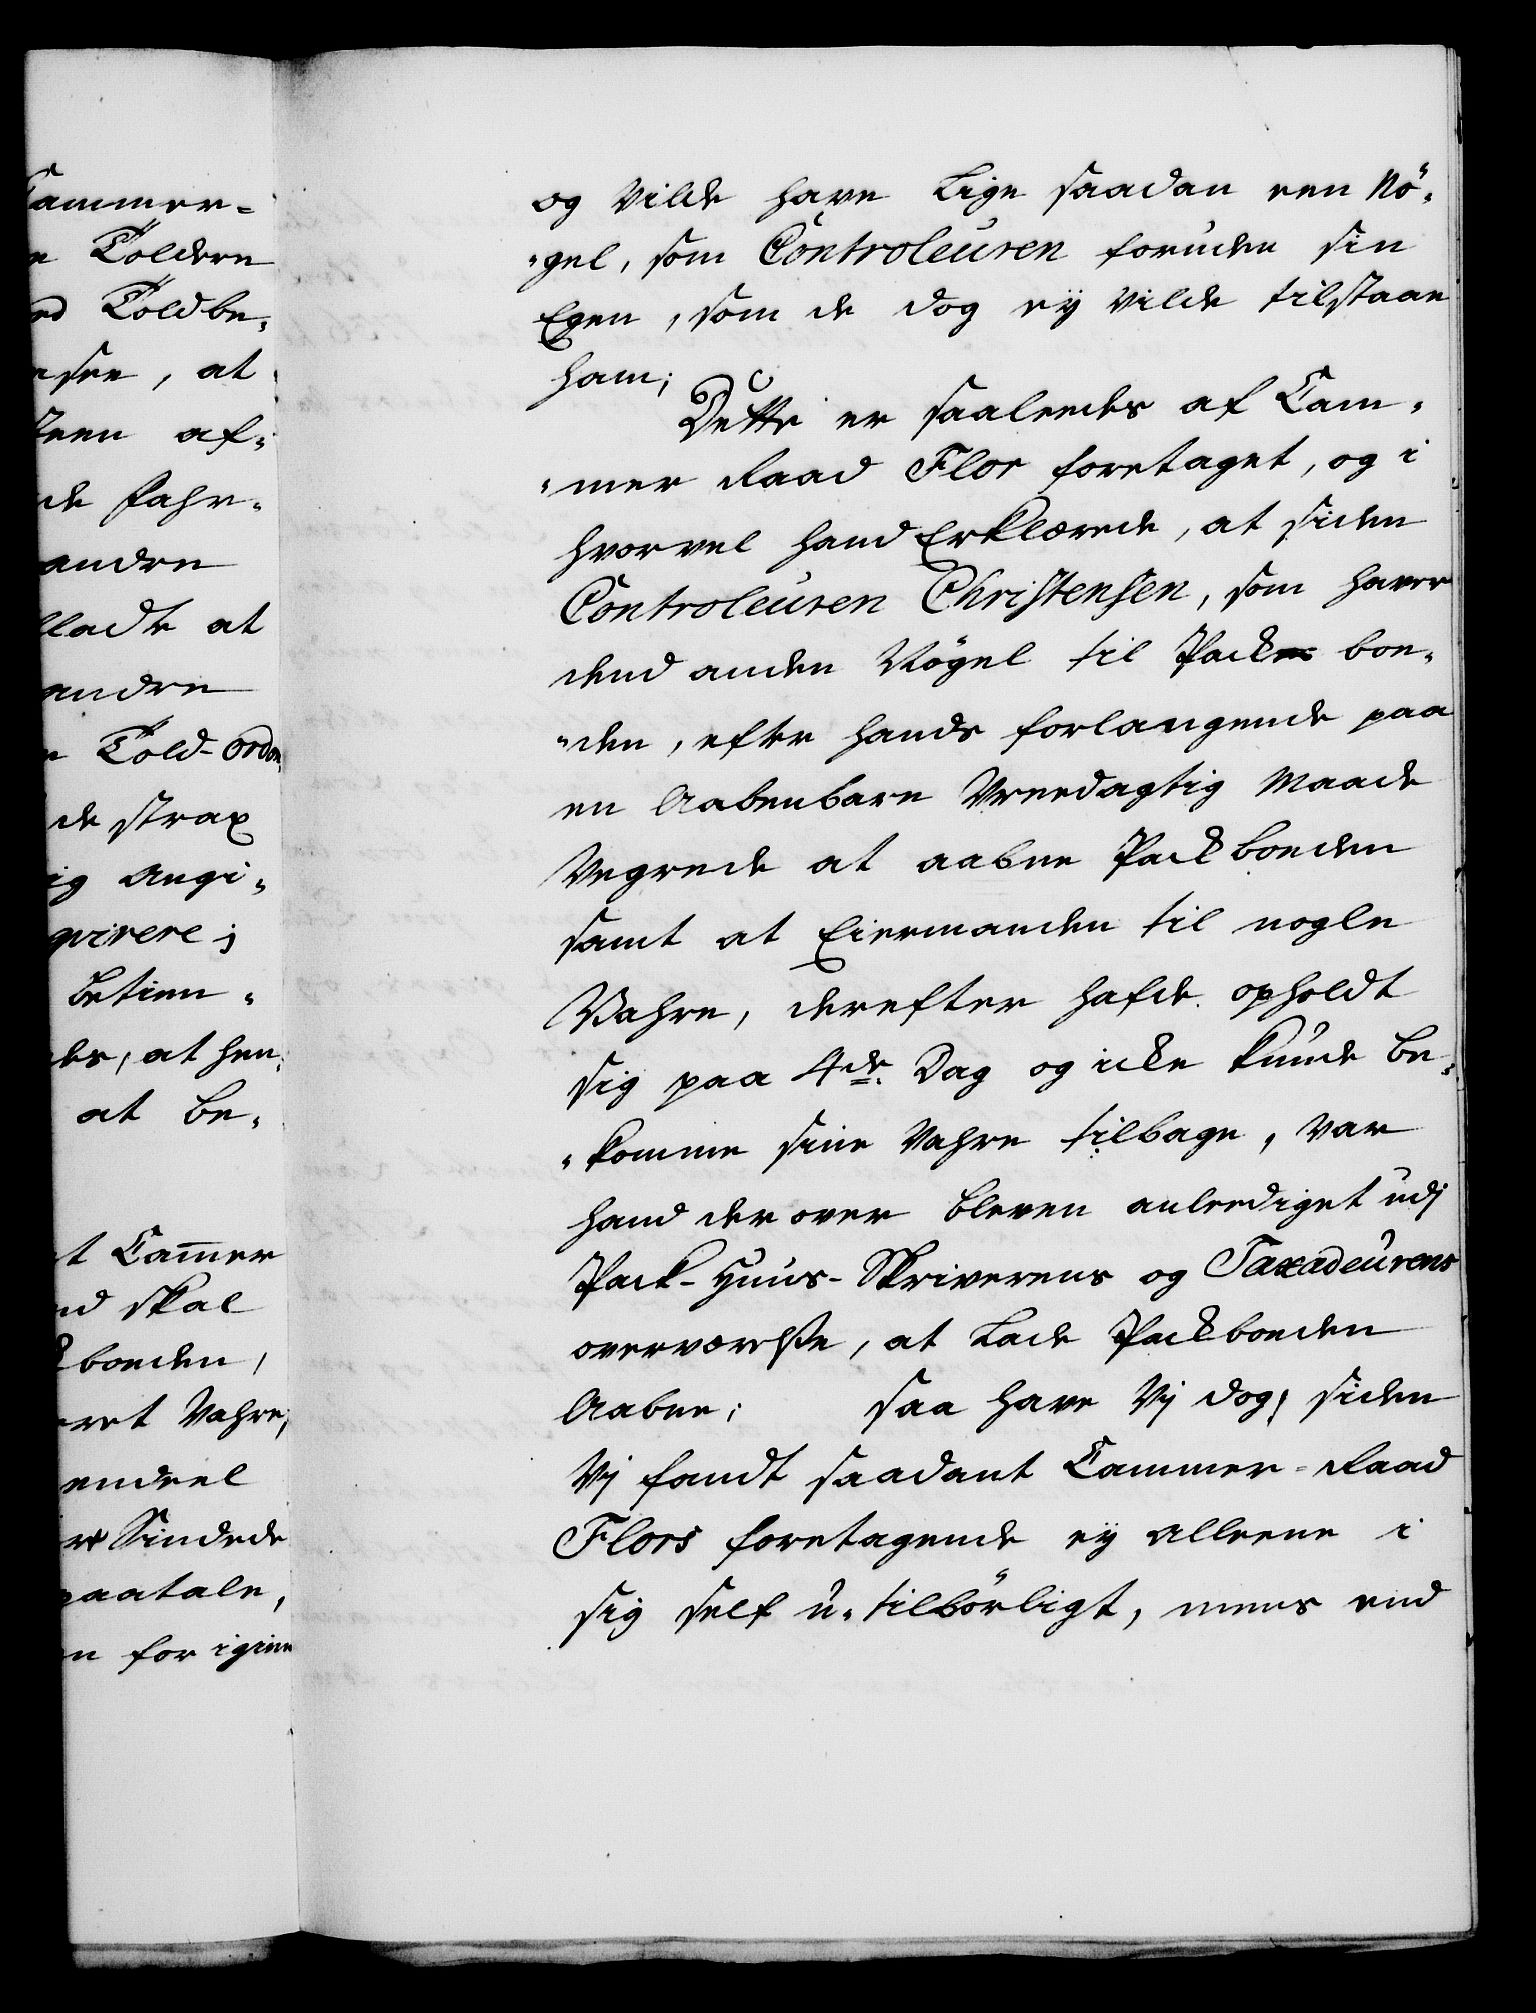 Cammer-
Toldere
Toldbe-
see, at
af-
de Fahr-
andre
lladt at
andre
Told-Ordon-
de strax
ig angi-
qvirere;
Betien-
des, at hen-
at be-
t Cam̅er
nd skal
boeden,
ret Vahre,
endeel
Sindede
paatale,
n for igien
og vilde have Lige saadan een Nö-
-gel, som Controleuren foruden sin
Egen, som de dog eÿ vilde tilstaae
ham;
Dette er saaleedes af Cam-
-mer Raad Flor foretaget, og i
hvorvel hand Erklærede, at siden
Controleuren Christensen, som haver
dend anden Nögel til Pack boe-
-den, efter hands forlangende paa
en Aabenbare Vreedagtig Maade
Vegrede at aabne Packboeden
samt at Eiermanden til nogle
Vahre, derefter hafde opholdt
sig paa 4de Dag og icke kunde be-
-komme sine Vahre tilbage, var
hand derover bleven anleediget udj
Pack-Huus-Skriverens og Taxadeurens
overværelse, at Lade Packboeden
Aabne; saa have Vj dog, siden
Vj fandt saadant Cammer-Raad
Flors foretagende eÿ alleene i
sig self u-tilbörligt, mens end